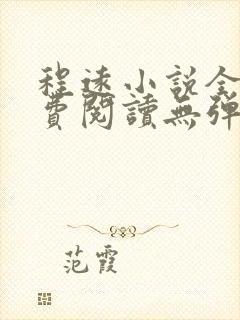 程遠小說全
費閱讀無彈
范霞